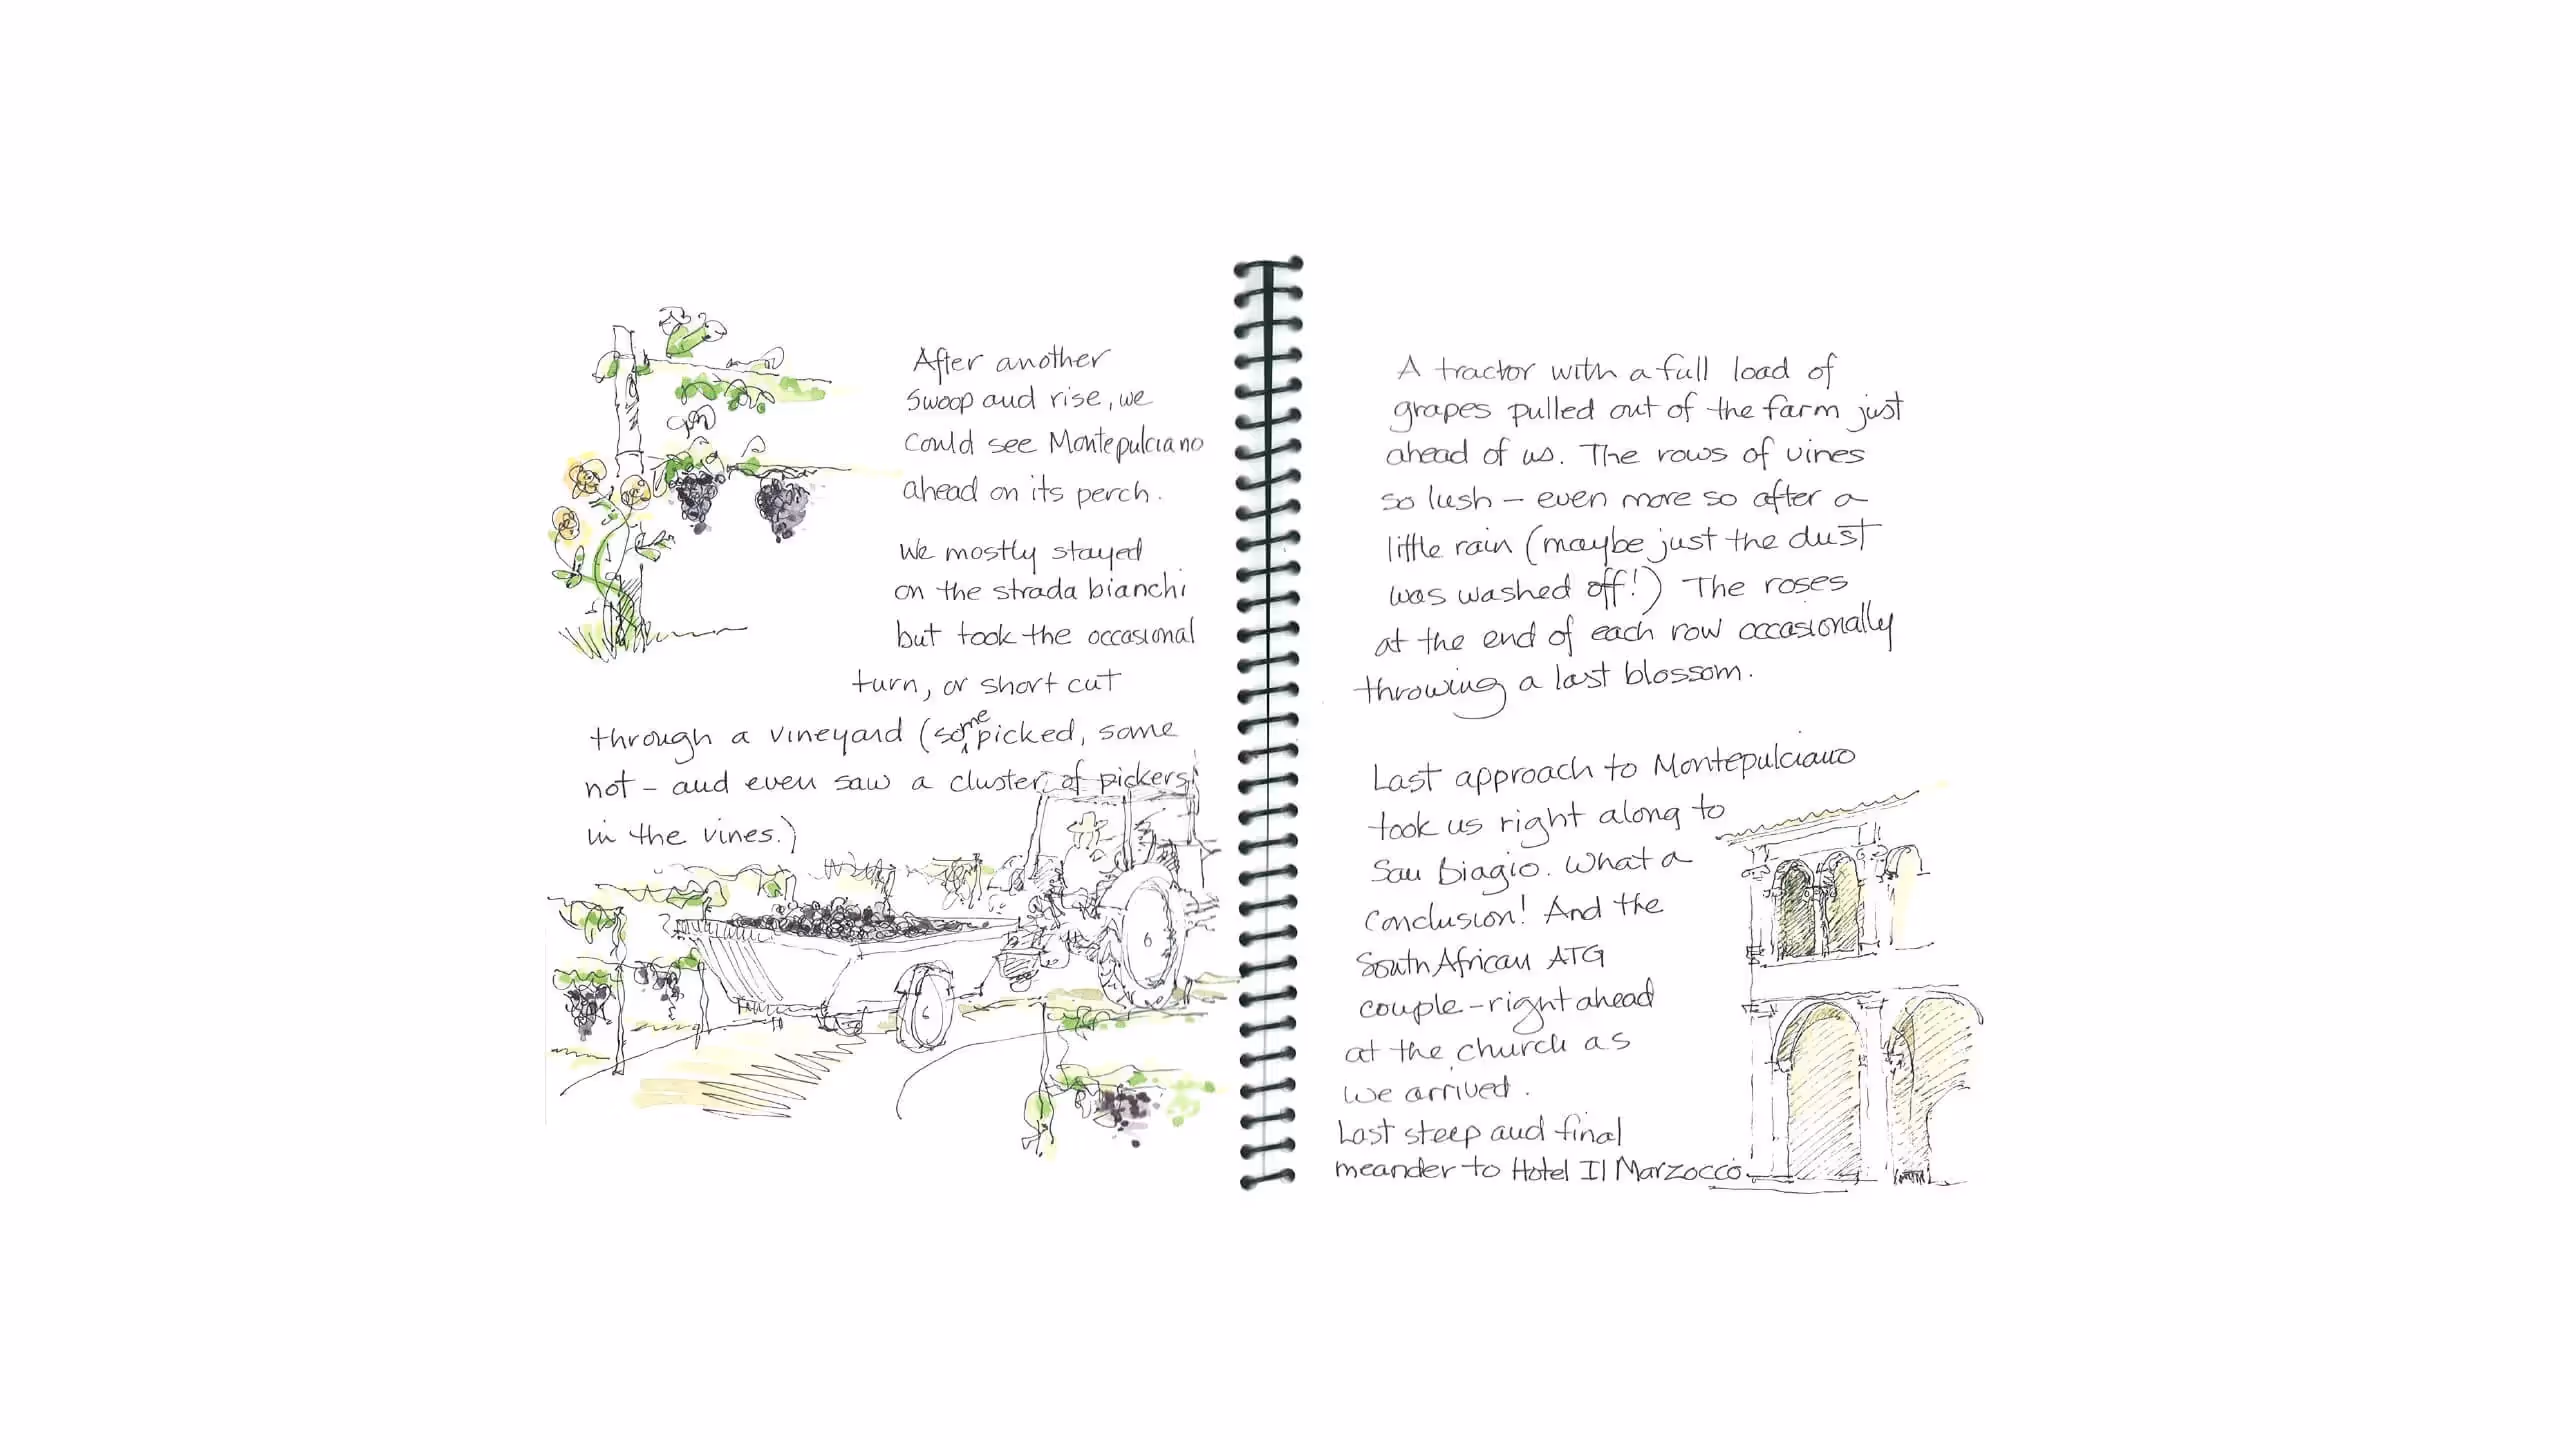 After another
swoop and rise, we
could see Montepulciano
ahead on its perch.
We mostly stayed
on the strada bianchi
but took the occasional
turn, or short cut
through a vineyard (some picked, some
not – and even saw a cluster of pickers
in the vines.)
6
6
A tractor with a full load of
grapes pulled out of the farm just
ahead of us. The rows of vines
so lush – even more so after a
little rain (maybe just the dust
was washed off!) The roses
at the end of each row occasionally
throwing a last blossom.
Last approach to Montepulciano
took us right along to
San Biagio. What a
conclusion! And the
South African ATG
couple – right ahead
at the church as
we arrived.
Last steep and final
meander to Hotel Il Marzocco.